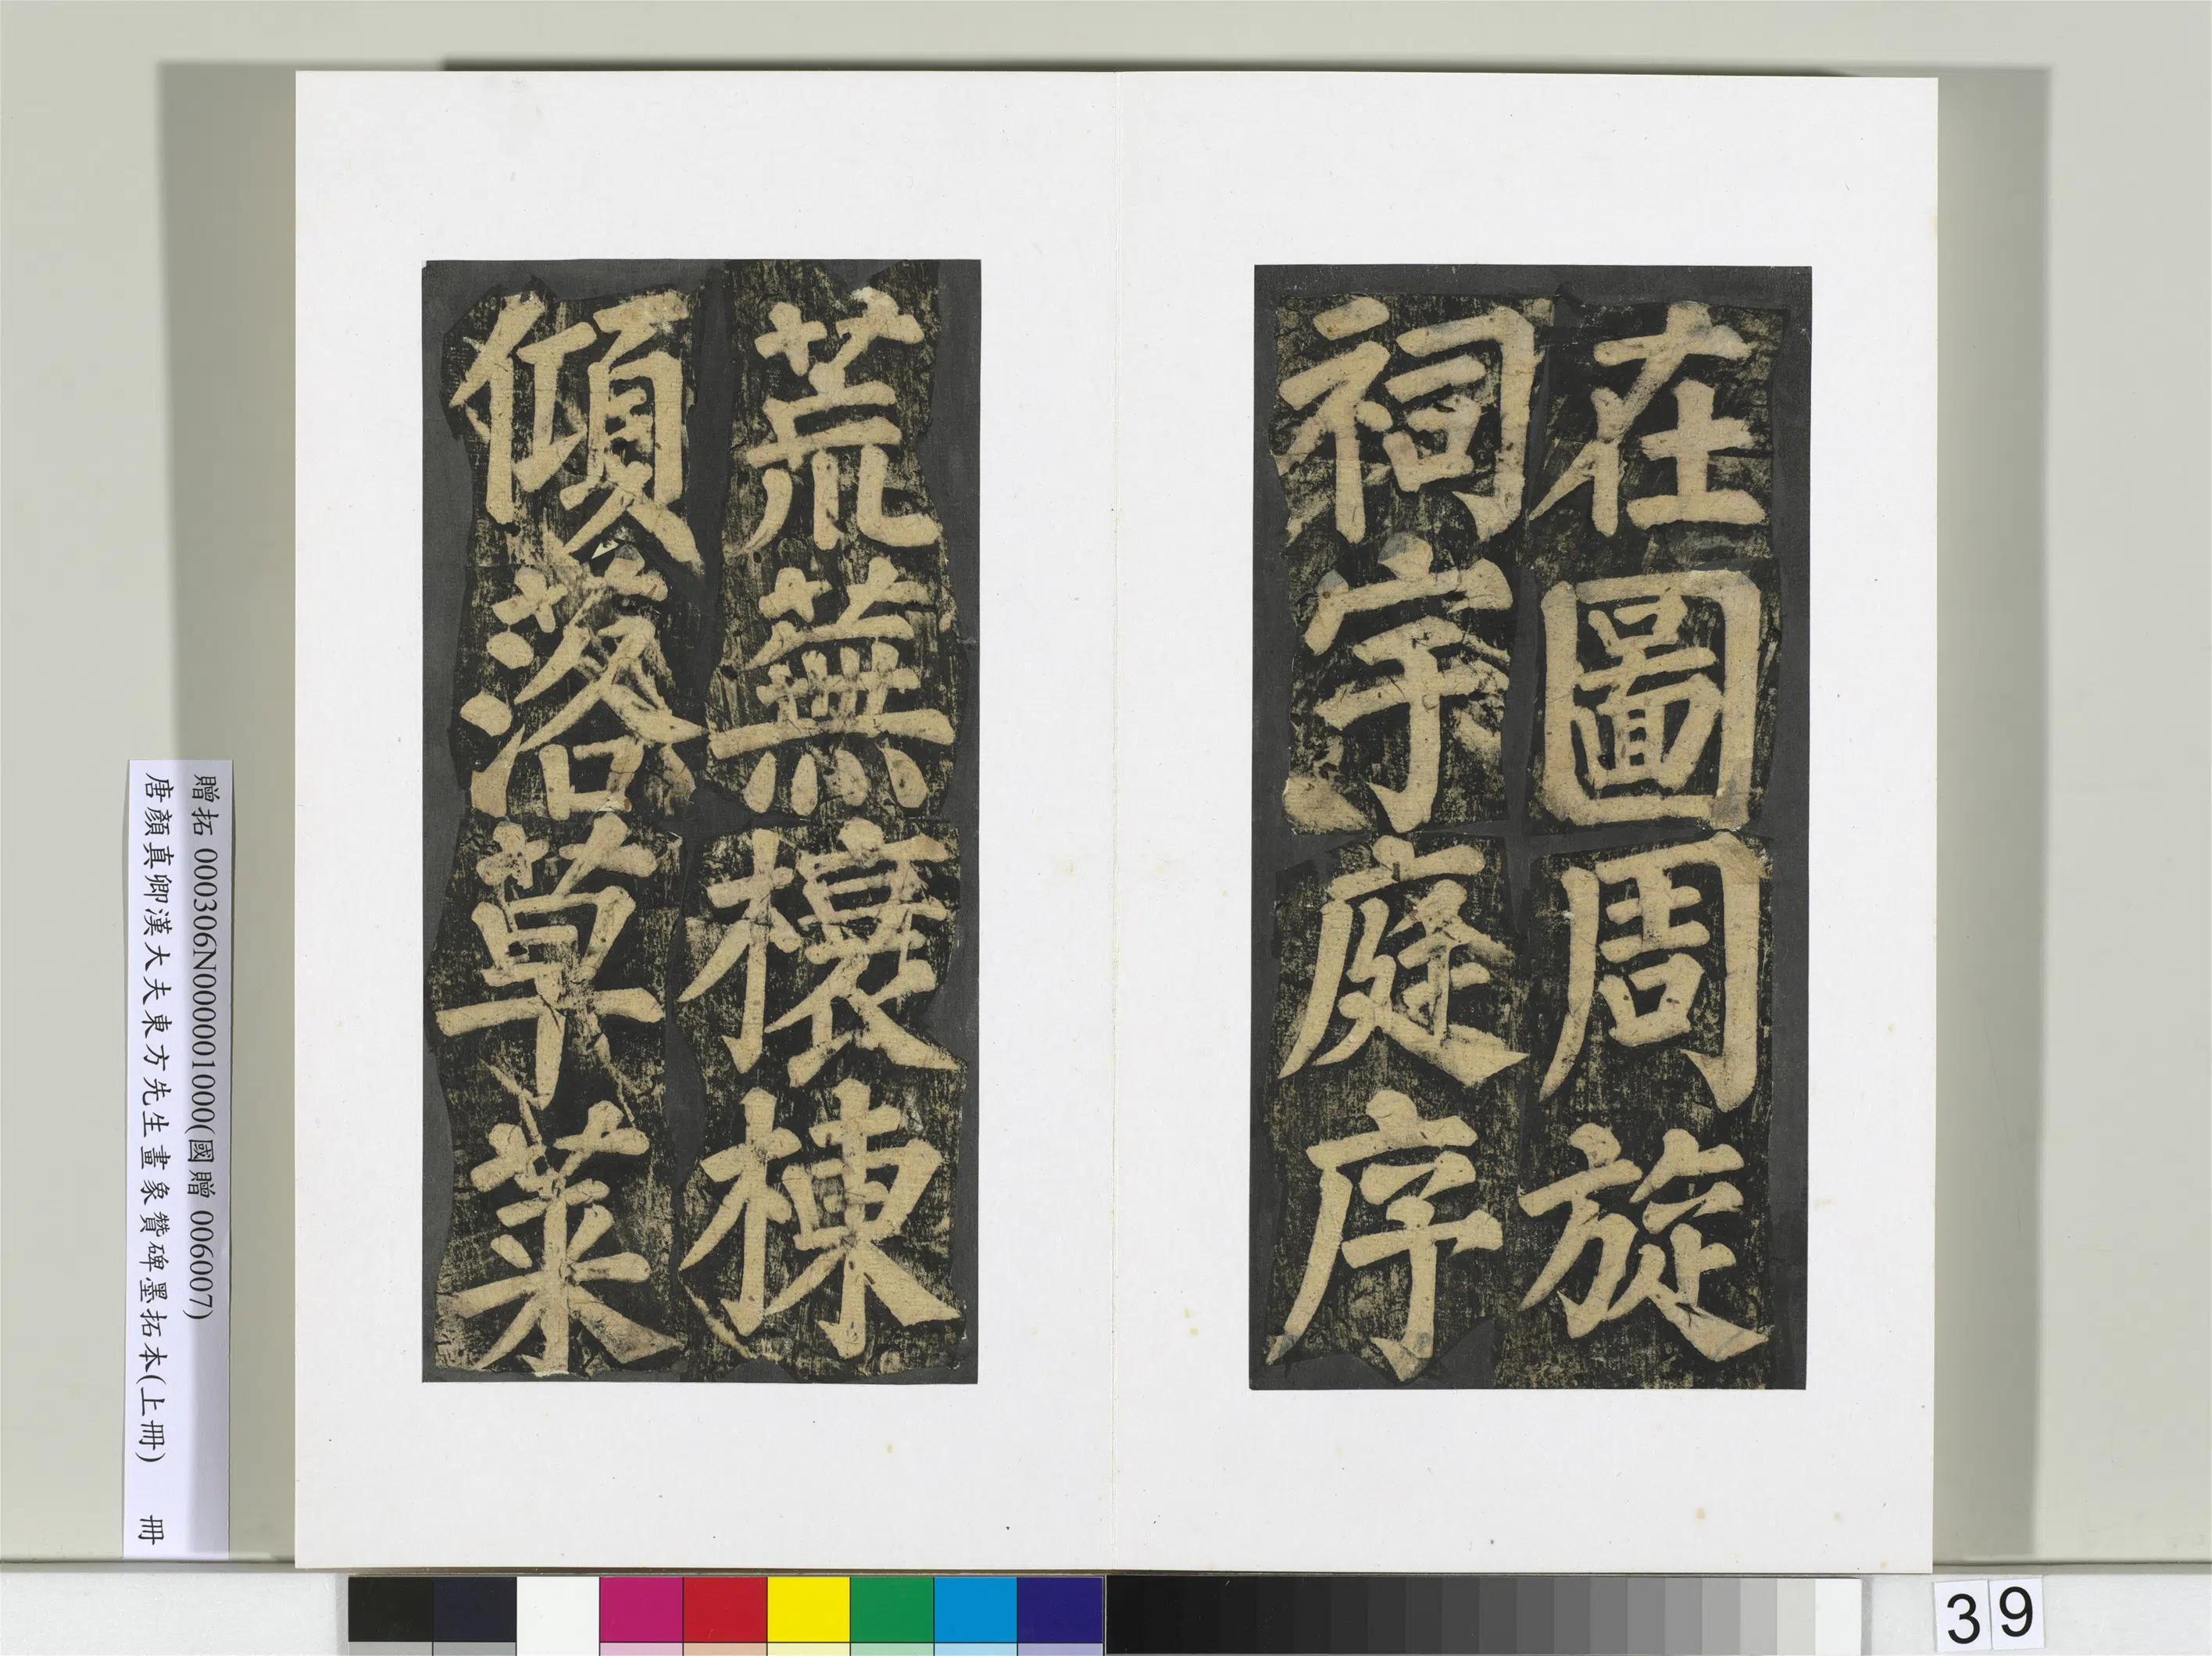 在圖周旋
祠宇庭序
荒蕪榱棟
傾落草萊
贈拓 000306N000001000(國贈 006007)
唐顏真卿漢大夫東方先生畫象贊碑墨拓本(上冊) 冊
39